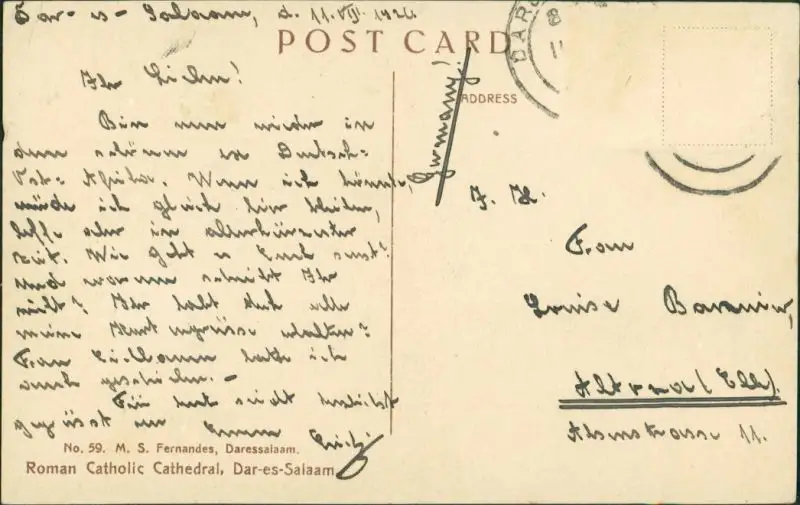 Dar-es-Salaam, d. 11.VIII.1926.
POST CARD
DARS
ADDRESS
Germany.
Ihr Lieben!
Bin nun wieder in
dem schönen ex Deutsch=
Ost=Afrika. Wenn ich könnte,
würde ich gleich hier bleiben,
hoffe aber in allerkürzester
Zeit. Wie geht es Euch sonst?
Und warum schreibt Ihr
nicht? Ihr habt doch alle
meine Kartengrüsse erhalten?
Frau Lillmann hatte ich
auch geschrieben. –
Für heut seid herzlichst
gegrüsst von Eurem
Frau
Louise
Altona (Elbe).
Alsenstrasse 11.
No. 59. M. S. Fernandes, Daressalaam.
Roman Catholic Cathedral, Dar-es-Salaam